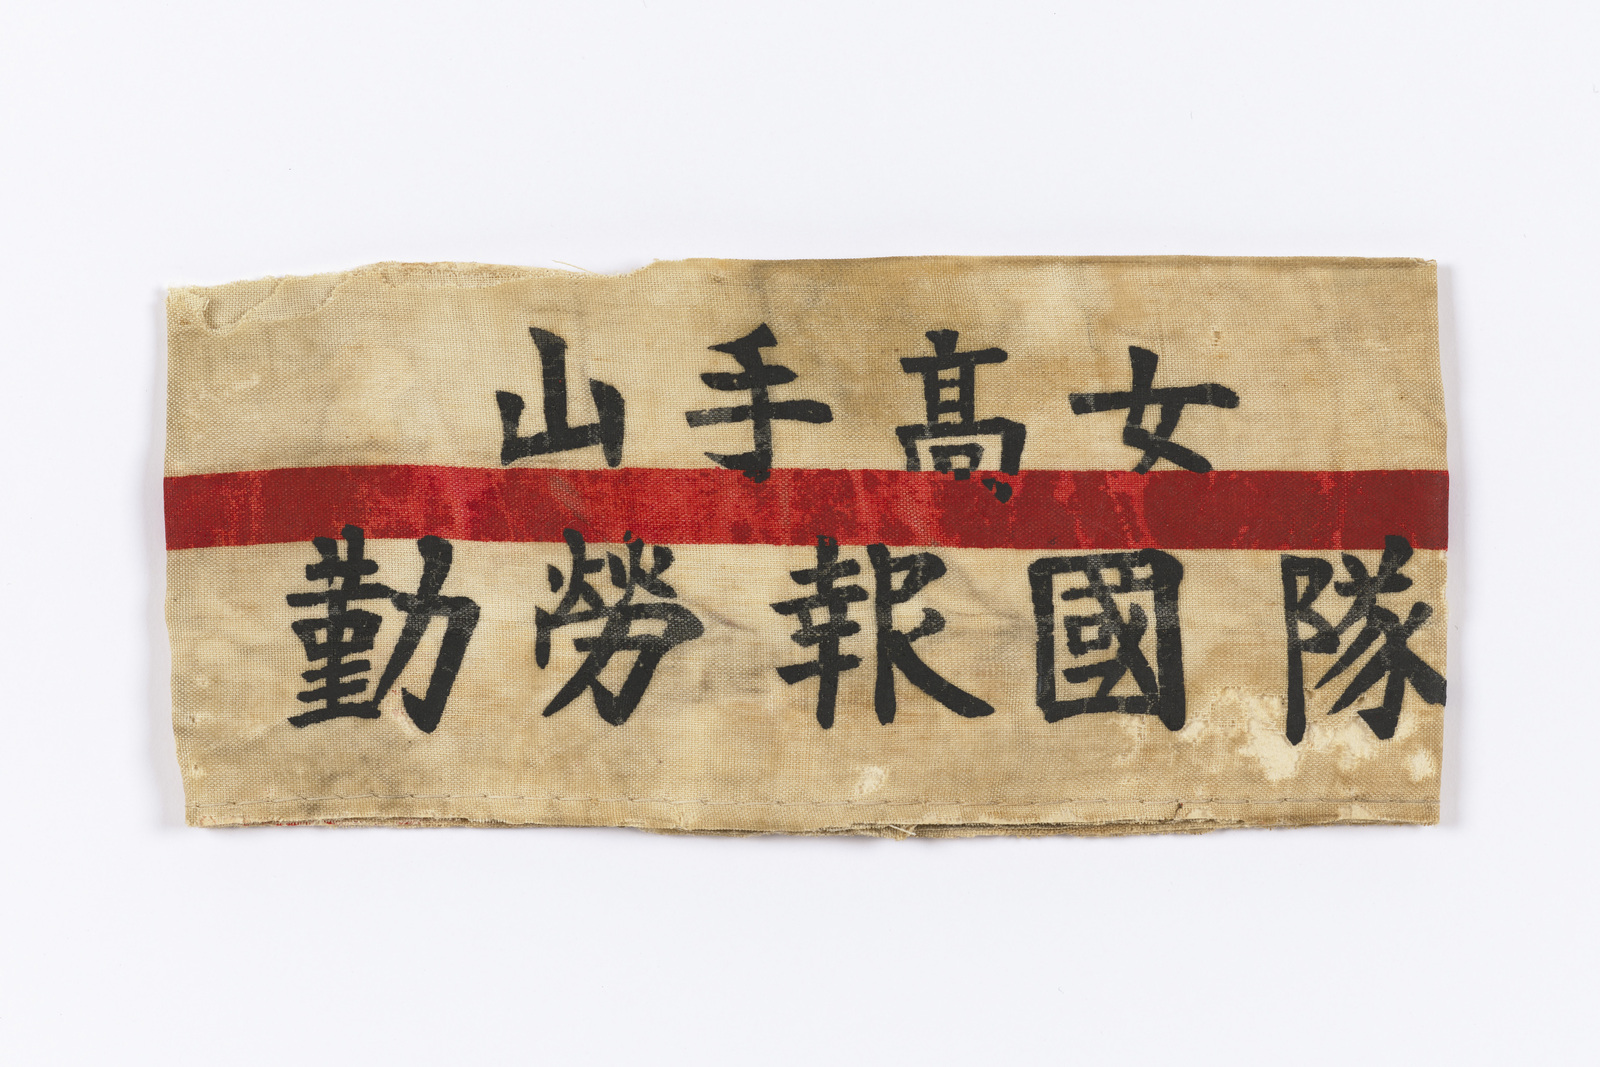 山手髙女
勤勞報國隊